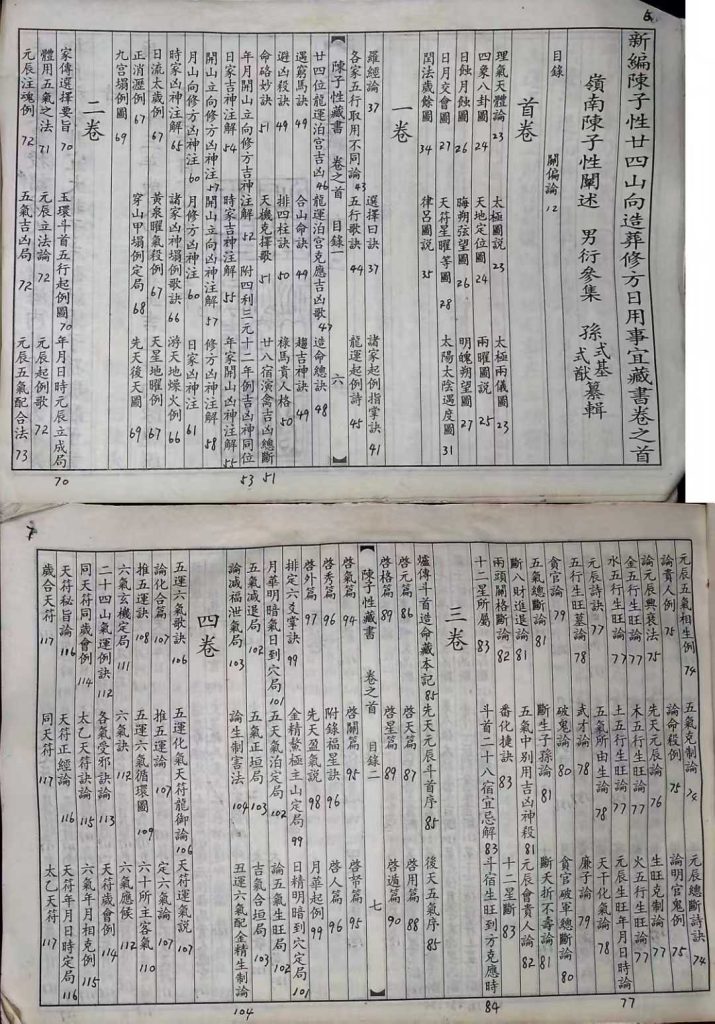 6
新編陳子性廿四山向造葬修方日用事宜藏書卷之首
嶺南陳子性闡述 男衍參集 孫式基 式猷 纂輯
目錄 闢偏論 12
首卷
理氣天體論 23 太極圖說 23 太極兩儀圖 23
四象八卦圖 24 天地定位圖 24 兩曜圖說 25
日蝕月蝕圖 26 晦朔弦望圖 26 明魄朔望圖 27
日月交會圖 27 天符星曜等圖 28 太陽太陰過度圖 31
閏法歲餘圖 34 律呂圖說 35
一卷
羅經論 37 選擇日訣 37 諸家起例指掌訣 41
各家五行取用不同論 43 五行歌訣 44 龍運起例詩 45
陳子性藏書 卷之首 目錄一 六
廿四位龍運泊宮吉凶 46 龍運泊宮克應吉凶歌 47 造命總訣 48
遇窮馬訣 49 合山命訣 49 趨吉神訣 49
避凶殺訣 49 排四柱訣 50 祿馬貴人格 50
命硌妙訣 51 天機克擇歌 51 廿八宿演禽吉凶總斷 51
年月開山立向修方吉神注解 52 附四利三元十二年例吉凶神同位 53
日家吉神注解 54 時家吉神注解 55 年家開山凶神注解 55
開山立向修方凶神注 57 開山立向凶神注解 57 修方凶神注解 58
月山向修方凶神注 60 月修方凶神注 60 日家凶神注 61
時家凶神注解 65 諸家凶神塌例歌訣 66 游天地燥火例 66
日流太歲例 67 黃泉曜氣殺例 67 天星地曜例 67
正消瀝例 67 穿山甲塌例定局 68 先天後天圖 69
九宮塌例圖 69
二卷
家傳選擇要旨 70 玉環斗首五行起例圖 70 年月日時元辰立成局 70
體用五氣之法 71 元辰立法論 72 元辰起例歌 72
元辰注魂例 72 五氣吉凶局 72 元辰五氣配合法 73
7
元辰五氣相生例 74 五氣克制論 74 元辰總斷詩訣 74
論貴人例 75 論命殺例 75 論明官鬼例 75
論元辰興衰法 75 先天元辰論 76 生旺克制論 77
金五行生旺論 77 木五行生旺論 77 火五行生旺論 77
水五行生旺論 77 土五行生旺論 77 元辰生旺年月日時論 77
元辰詩訣 77 五氣所由生論 78 天干化氣論 78
五行生旺墓論 78 武才論 78 廉子論 79
貪官論 79 破鬼論 80 貪官破軍總斷論 80
五氣總斷論 81 斷生子孫論 81 斷夭折不壽論 81
斷八財進退論 81 五氣中別用吉凶神殺 81 元辰會貴人論 82
兩頭關格斷論 82 番化捷訣 83 十二星斷 83
十二星所屬 83 斗首二十八宿宜忌解 83 斗宿生旺到方克應時 84
三卷
爐傳斗首造命藏本記 85 先天元辰斗首序 85 後天五氣序 85
啓元篇 86 啓天篇 87 啓用篇 88
啓格篇 89 啓星篇 89 啓遁篇 90
陳子性藏書 卷之首 目錄二 七
啓氣篇 94 啓關篇 95 啓帝篇 95
啓秀篇 96 附錄福星訣 96 啓人篇 96
啓外篇 97 先天盈氣說 98 月華起例 99
排定六爻掌訣 99 金精鰲極主山定局 99 日精明暗到穴定局 101
月華明暗氣日到穴局 101 五天氣泊定局 102 論五氣生旺局 102
五氣減退局 102 五氣正垣局 103 吉氣合垣局 103
論減福泄氣局 103 論生制害法 104 丑運六氣配金精生制論 104
四卷
五運六氣歌訣 106 五運化氣天符龍御論 106 天符運氣說 107
論化合篇 107 推五運論 107 定六氣論 107
推五運訣 108 五運六氣循環圖 109 六十所主客氣 110
六氣玄機定局 111 六氣訣 112 六氣應候 112
二十四山氣運例訣 112 各氣受邪訣論 113 天符歲會例 114
同天符同歲會例 114 太乙天符訣論 115 六氣年月相克例 115
天符秘旨論 116 天符正經論 116 天符年月日時定局 116
歲合天符 117 同天符 117 太乙天符 117